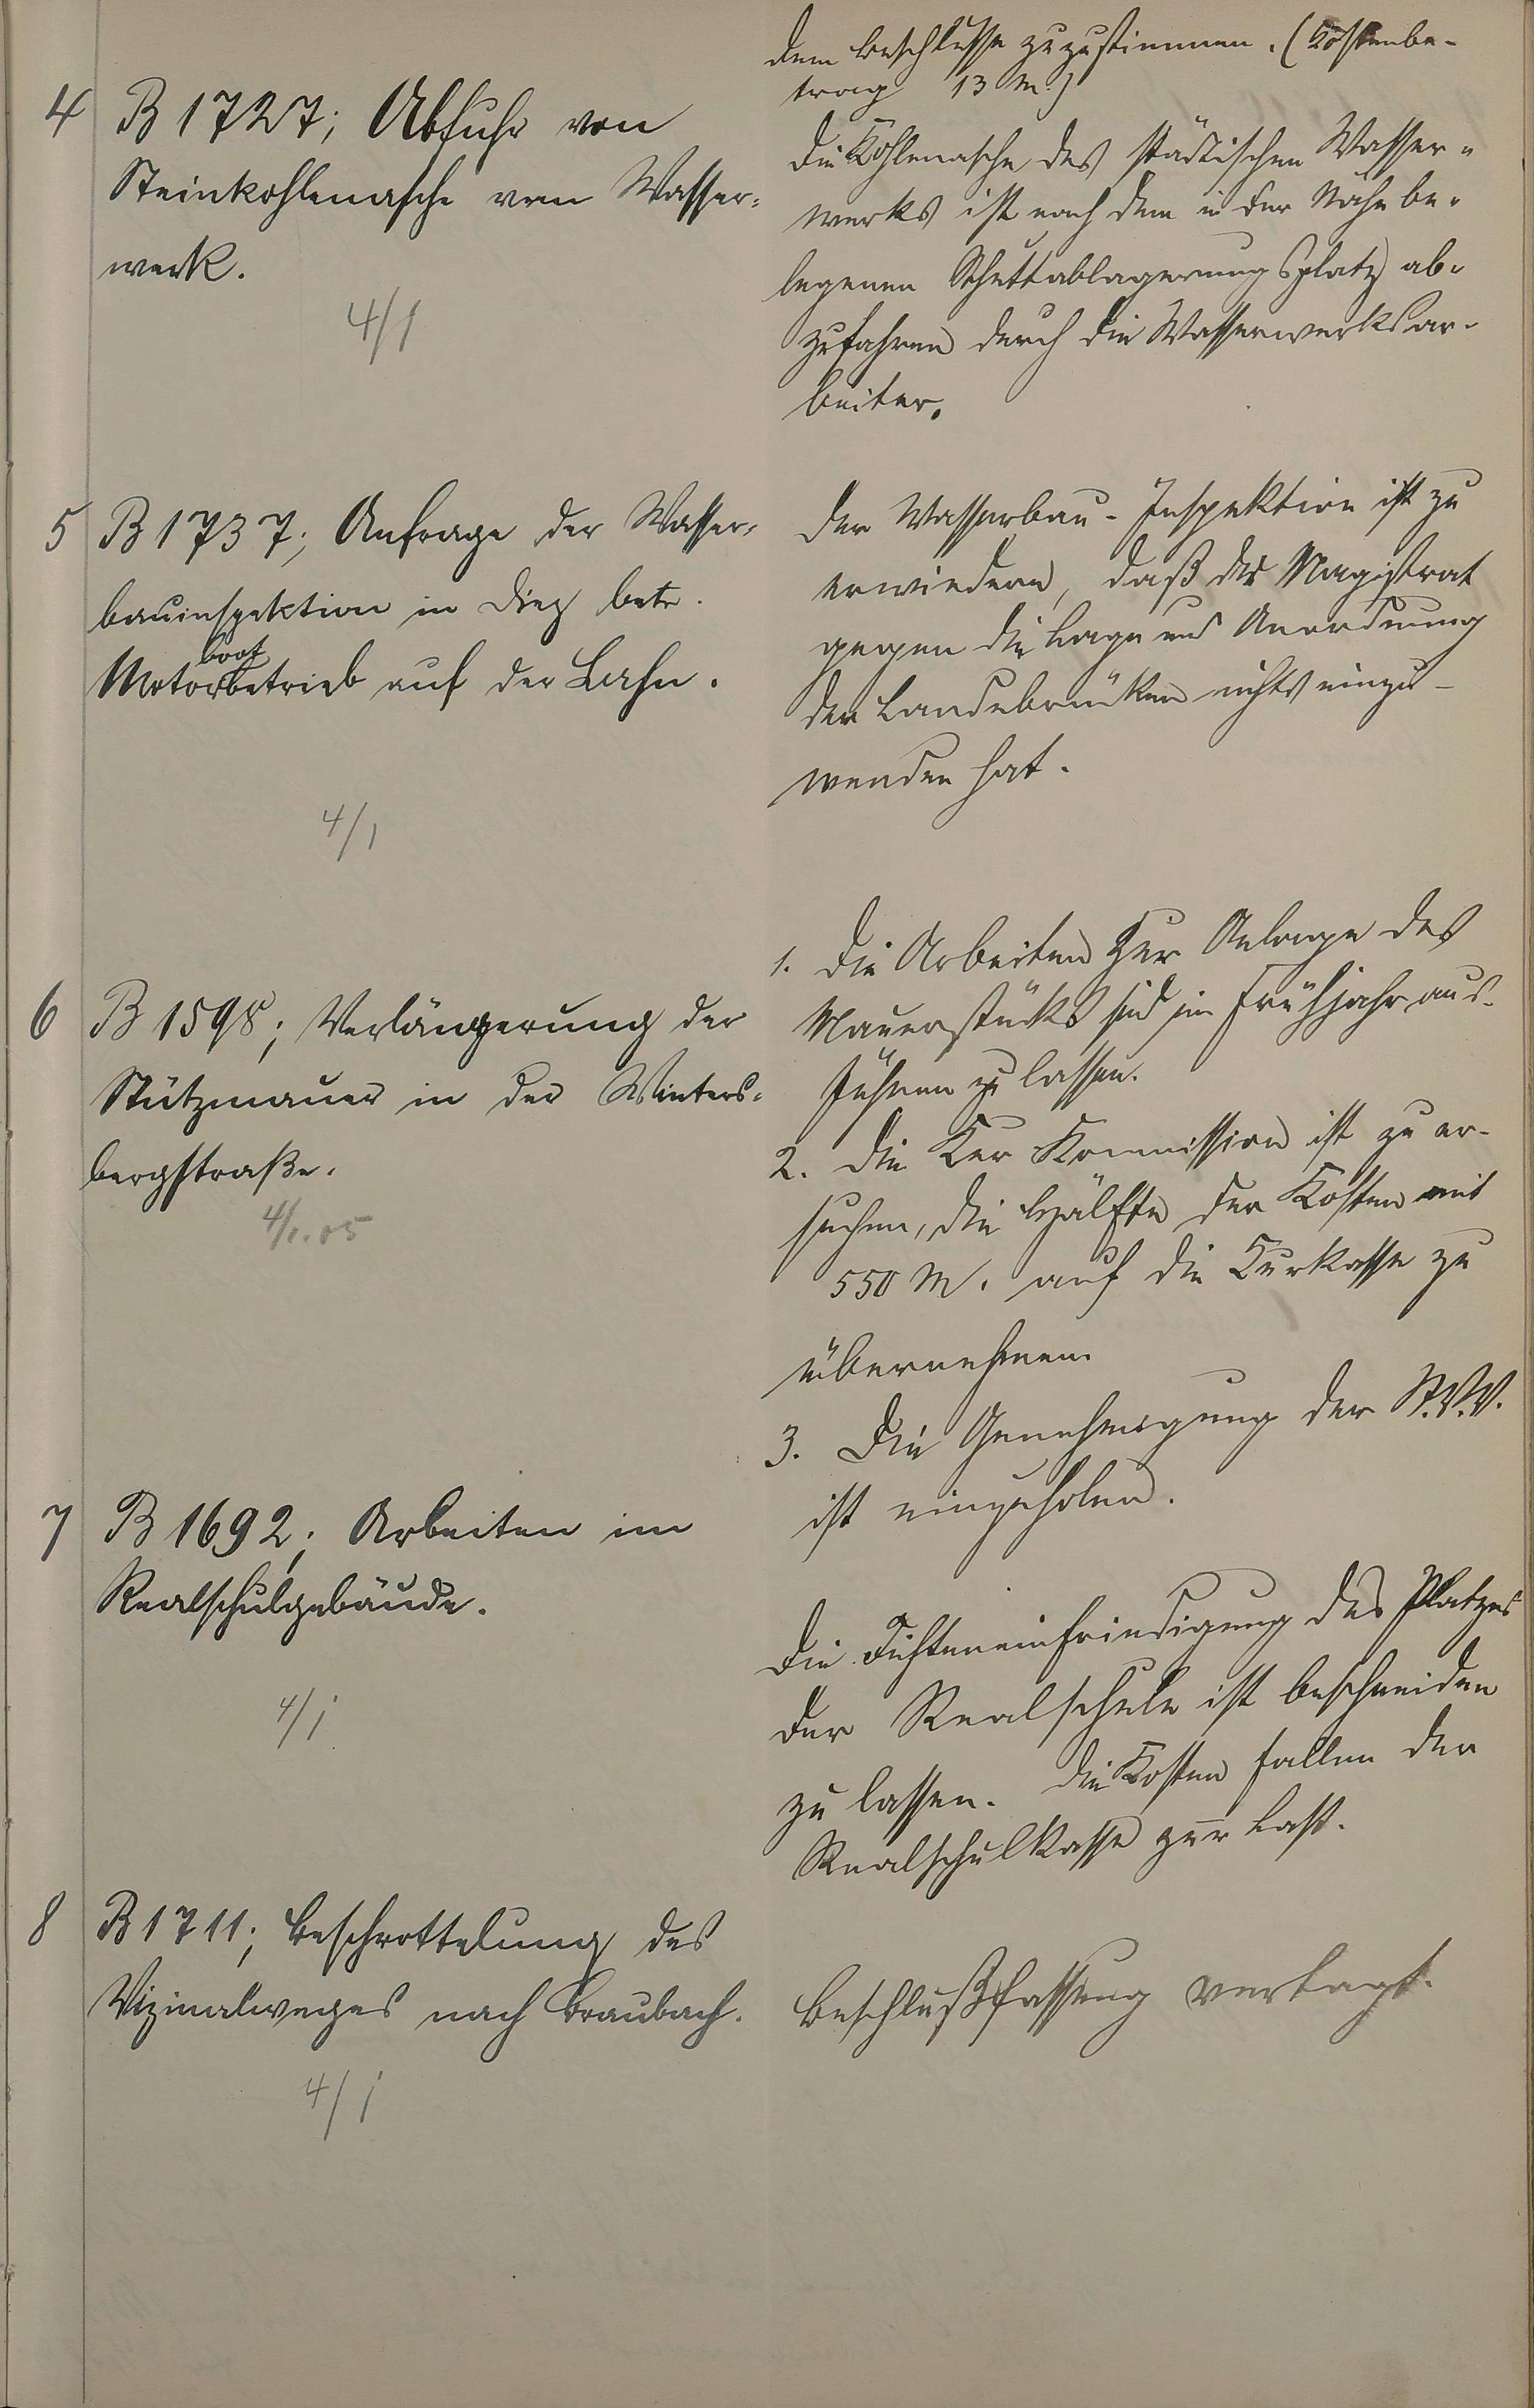 dem Beschlusse zuzustimmen. (Kostenbe-
trag 13 M.)
4
B 1727; Abfuhr von
Steinkohlenasche vom Wasser-
werk.
4/1
Die Kohlenasche des städtischen Wasser-
werks ist nach dem in der Nähe be-
legenen Schuttablagerungsplatz ab-
zufahren durch die Wasserwerksar-
beiter.
5
B 1737; Anfrage der Wasser-
bauinspektion in Diez betr.
boot
Motorbetrieb auf der Lahn.
4/1
Der Wasserbau-Inspektion ist zu
erwiedern, daß der Magistrat
gegen die Lage und Anordnung
der Landebrücken nichts einzu-
wenden hat.
6
B 1598; Verlängerung der
Stützmauer in der Winters-
bergstraße.
4/1.05
1. Die Arbeiten zur Anlage des
Mauerstücks sind im Frühjahr aus-
führen zu lassen.
2. Die Kur Kommission ist zu er-
suchen, die Hälfte der Kosten mit
550 M. auf die Kurkasse zu
übernehmen.
3. Die Genehmigung der St.V.V.
ist einzuholen.
7
B 1692; Arbeiten im
Realschulgebäude.
4/1
Die Fichteneinfriedigung des Platzes
der Realschule ist beschneiden
zu lassen. Die Kosten fallen der
Realschulkasse zur Last.
8
B 1711; Beschrottelung des
Vizinalweges nach Braubach.
4/1
Beschlußfassung vertagt.